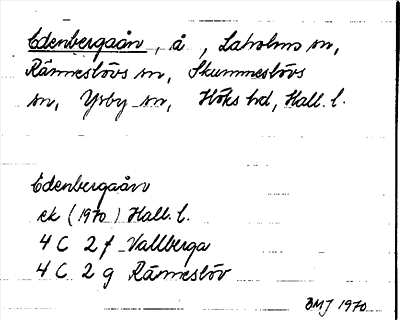 Edenbergaån, å, Laholms sn,
Ränneslövs sn, Skummeslövs
sn, Ysby sn, Höks hd, Hall. l.
Edenbergaån
ek (1970) Hall. l.
4 C 2 f Vallberga
4 C 2 g Ränneslöv
BMJ 1970